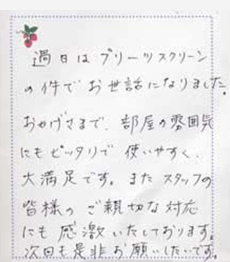 過日はプリーツスクリーン
の件でお世話になりました。
おかげさまで、部屋の雰囲気
にもピッタリで使いやすく、
大満足です。また スタッフの
皆様の ご親切な対応
にも感激いたしております。
次回も是非お願いしたいです。